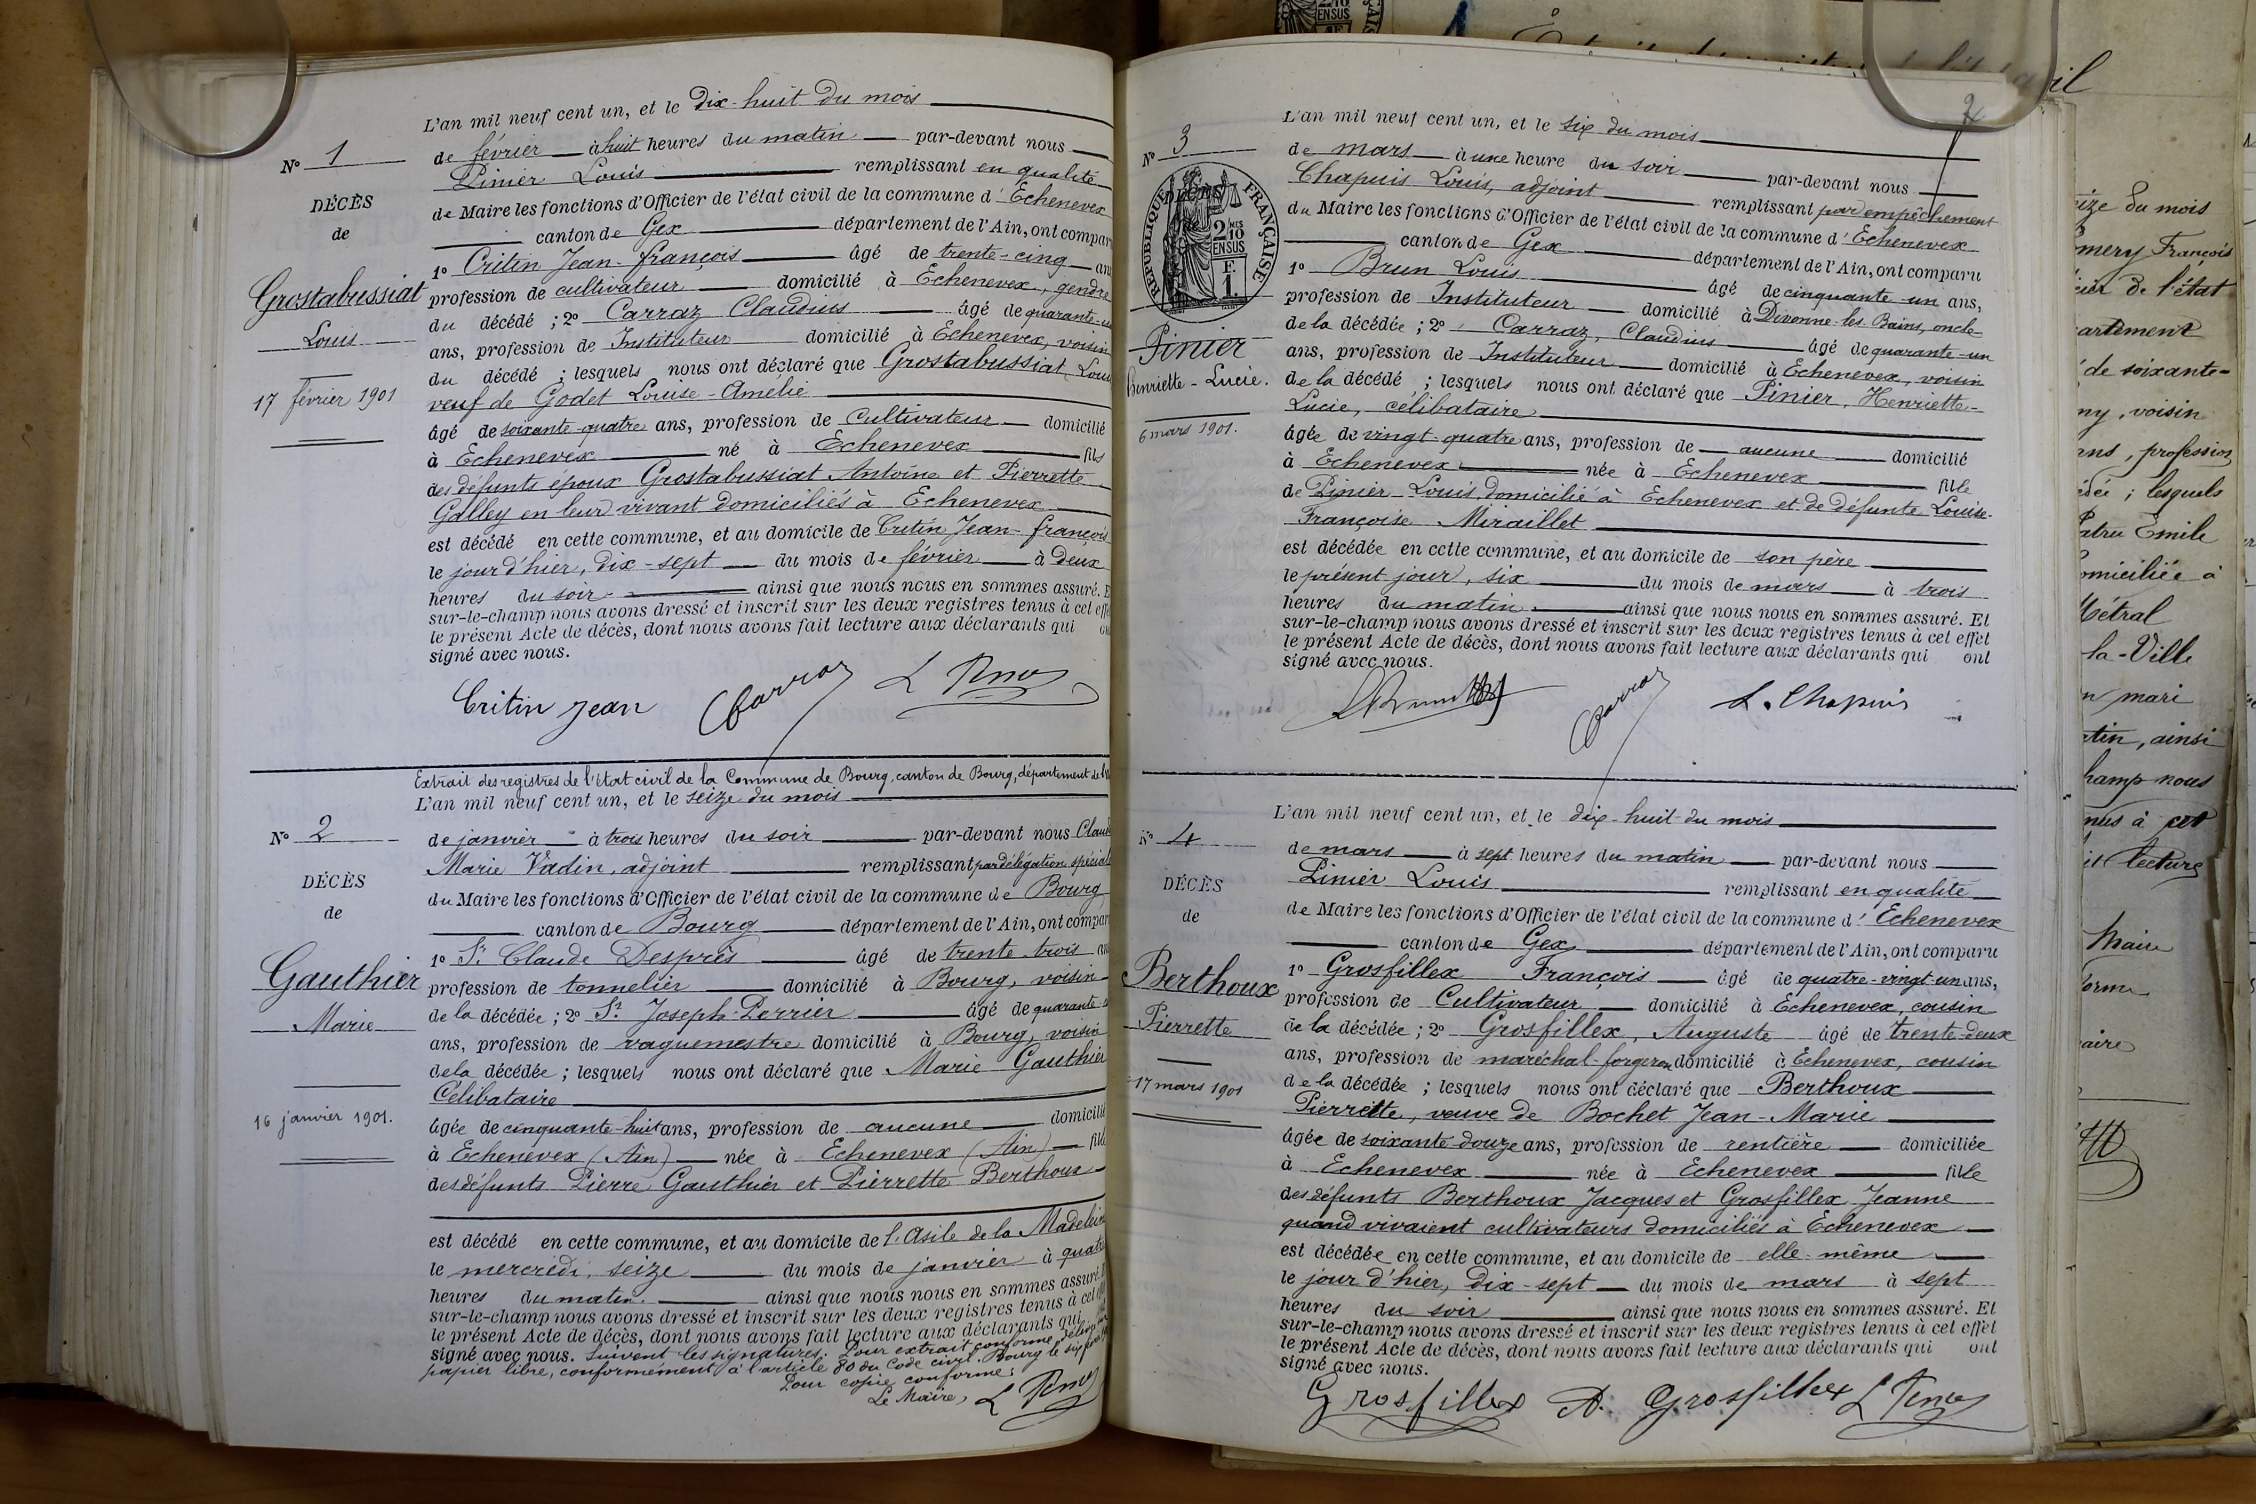 L'an mil neuf cent un, et le dix-huit du mois
N° 1
de février à huit heures du matin par-devant nous
Pinier Louis remplissant en qualité
DÉCÈS
de Maire les fonctions d'Officier de l'état civil de la commune d'Echenevex
de
canton de Gex département de l'Ain, ont compar
1° Critin Jean-françois âgé de trente-cinq an
Grostabussiat
profession de cultivateur domicilié à Echenevex, gendre
du décédé ; 2° Carraz Claudius âgé de quarante-u
Louis
ans, profession de Instituteur domicilié à Echenevex, voisin
du décédé ; lesquels nous ont déclaré que Grostabussiat Loui
17 février 1901
veuf de Godet Louise-Amelie
âgé de soixante-quatre ans, profession de Cultivateur domicilié
à Echenevex né à Echenevex fils
des défunts époux Grostabussiat Antoine et Pierrette
Galley en leur vivant domiciliés à Echenevex
est décédé en cette commune, et au domicile de Critin Jean-françois
le jour d'hier, dix-sept du mois de février à deux
heures du soir ainsi que nous nous en sommes assuré. E
sur-le-champ nous avons dressé et inscrit sur les deux registres tenus à cet effe
le présent Acte de décès, dont nous avons fait lecture aux déclarants qui on
signé avec nous.
Critin Jean Carraz L Pinier
Extrait des registres de l'état civil de la Commune de Bourg, canton de Bourg, département de l'
L'an mil neuf cent un, et le seize du mois
N° 2
de janvier à trois heures du soir par-devant nous Claud
Marie Vadin, adjoint remplissant par délégation spéciale
DÉCÈS
du Maire les fonctions d'Officier de l'état civil de la commune de Bourg
de
canton de Bourg département de l'Ain, ont compar
1° Sr Claude Desprès âgé de trente-trois an
Gauthier
profession de tonnelier domicilié à Bourg, voisin
de la décédée ; 2° Sr Joseph Perrier âgé de quarante
Marie
ans, profession de vaguemestre domicilié à Bourg, voisin
de la décédée ; lesquels nous ont déclaré que Marie Gauthier
Célibataire
16 janvier 1901.
âgée de cinquante-huit ans, profession de aucune domicilié
à Echenevex (Ain) née à Echenevex (Ain) fille
des défunts Pierre Gauthier et Pierrette Berthoux
est décédé en cette commune, et au domicile de l'Asile de la Madeleine
le mercredi, seize du mois de janvier à quatre
heures du matin. ainsi que nous nous en sommes assuré.
sur-le-champ nous avons dressé et inscrit sur les deux registres tenus à cet
le présent Acte de décès, dont nous avons fait lecture aux déclarants qui
signé avec nous. Suivent les signatures. Pour extrait conforme délivré
papier libre, conformément à l'article 80 du Code civil. Bourg le six
Pour copie conforme:
Le Maire, L Pinier
2
L'an mil neuf cent un, et le six du mois
N° 3
de mars à une heure du soir par-devant nous
Chapuis Louis, adjoint remplissant par empêchement
DÉCÈS
RÉPUBLIQUE FRANÇAISE
2 MES 10 EN SUS
F. 1.
du Maire les fonctions d'Officier de l'état civil de la commune d'Echenevex
canton de Gex département de l'Ain, ont comparu
1° Brun Louis âgé de cinquante-un ans,
profession de Instituteur domicilié à Divonne-les-Bains, oncle
de la décédée ; 2° Carraz, Claudius âgé de quarante-un
Pinier
ans, profession de Instituteur domicilié à Echenevex, voisin
Henriette-Lucie.
de la décédé ; lesquels nous ont déclaré que Pinier, Henriette-
Lucie, célibataire
6 mars 1901.
âgée de vingt-quatre ans, profession de aucune domicilié
à Echenevex née à Echenevex fille
de Pinier Louis, domicilié à Echenevex et de défunte Louise-
Françoise Miraillet
est décédée en cette commune, et au domicile de son père
le présent jour, six du mois de mars à trois
heures du matin ainsi que nous nous en sommes assuré. Et
sur-le-champ nous avons dressé et inscrit sur les deux registres tenus à cet effet
le présent Acte de décès, dont nous avons fait lecture aux déclarants qui ont
signé avec nous.
Carraz L. Chapuis
L'an mil neuf cent un, et le dix-huit du mois
N° 4
de mars à sept heures du matin par-devant nous
Pinier Louis remplissant en qualité
DÉCÈS
de Maire les fonctions d'Officier de l'état civil de la commune d'Echenevex
de
canton de Gex département de l'Ain, ont comparu
1° Grosfillex François âgé de quatre-vingt-un ans,
Berthoux
profession de Cultivateur domicilié à Echenevex, cousin
Pierrette
de la décédée ; 2° Grosfillex, Auguste âgé de trente-deux
ans, profession de maréchal-forgeron domicilié à Echenevex, cousin
17 mars 1901
de la décédée ; lesquels nous ont déclaré que Berthoux
Pierrette, veuve de Bochet Jean-Marie
âgée de soixante-douze ans, profession de rentière domiciliée
à Echenevex née à Echenevex fille
des défunts Berthoux Jacques et Grosfillex Jeanne
quand vivaient cultivateurs domiciliés à Echenevex
est décédée en cette commune, et au domicile de elle-même
le jour d'hier, dix-sept du mois de mars à sept
heures du soir ainsi que nous nous en sommes assuré. Et
sur-le-champ nous avons dressé et inscrit sur les deux registres tenus à cet effet
le présent Acte de décès, dont nous avons fait lecture aux déclarants qui ont
signé avec nous.
Grosfillex A. Grosfillex L Pinier
eize du mois
mery François
cier de l'état
artement
de soixante-
ny, voisin
ans, profession
édée ; lesquels
Patru Emile
omiciliée à
Métral
la-Ville
n mari
atin, ainsi
hamp nous
nus à cet
it lecture
Maire
forme
aire